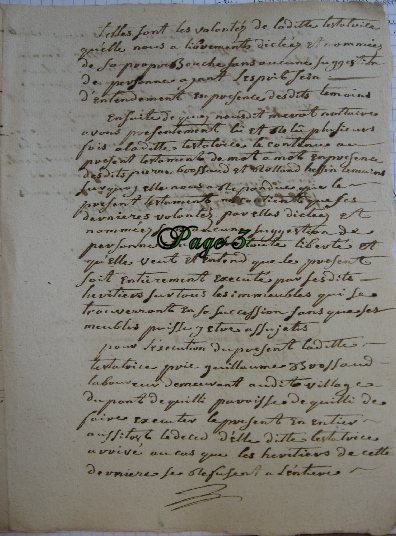 telles sont les volontéz de laditte testatrice
qu'elle nous a librements dictéez et nomméez
de sa propre Bouche sans aucune suggestion
de personne ayant l'esprit sein
d'entendement en presence desdits temoins
Ensuitte de quoy nousdit notaire
avons presentement lû et relu plusieurs
fois a laditte testatrice le contenue au
present testaments de mot a mot En presence
desdits pierre Brossaud et Rolland témoins
lesquoy elle nous a repondue que le
present testaments ne contient que ses
dernieres volontéz par elles dictéez et
nomméez sans aucune suggestion de
personne liberté et
qu'elle veut et entend que le present
soit Entierement executé par sesdits
heritiers sur tous les immeubles qui se
trouverront En sa succession sans que ses
meubles puisse y etre assujetis
pour l'execution du present laditte
testatrice prie guillaume Brossaud
laboureur demeurant audit village
du pont de quilli paroisse de quilli de
faire executer le present en entier
aussitost le deced d'elle ditte testatrice
arrivé au cas que les heritiers de cette
derniere se refusent a l'entiere
Page 3